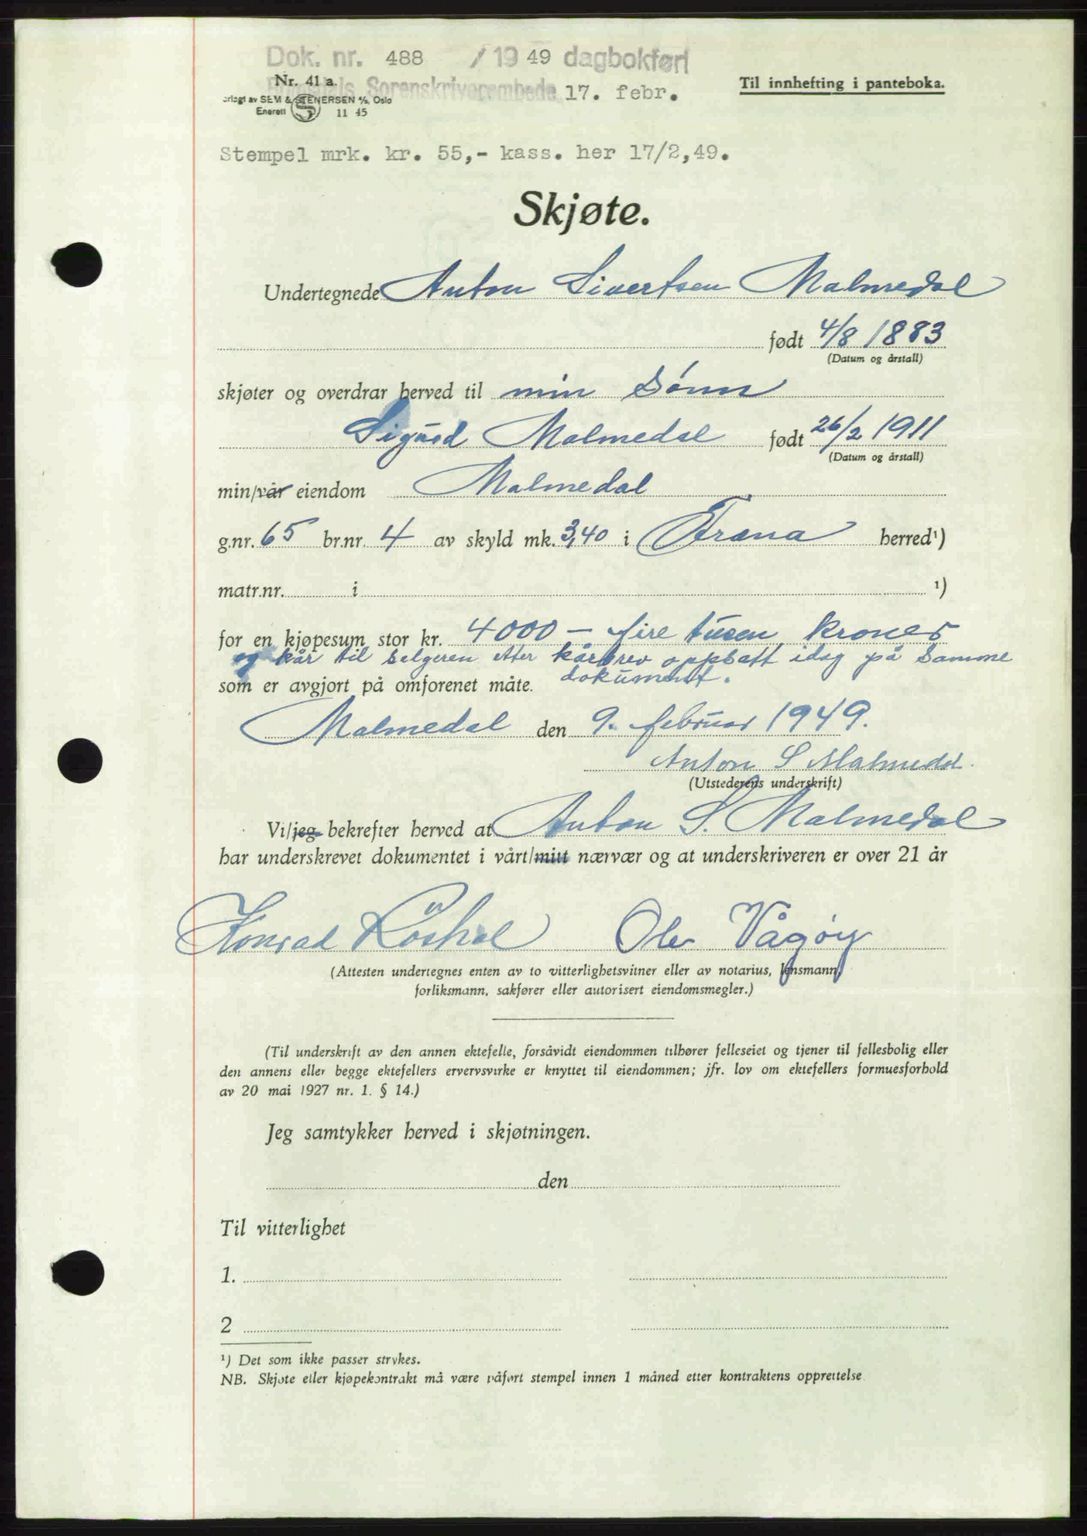 Dok. nr. 488 / 1949 dagbokført
Nr. 41 a. Sorenskriverembede 17. febr.
Til innhefting i panteboka.
SEM & STENERSEN A/S, Oslo
Enerett S 11 45
Stempel mrk. kr. 55,- kass. her 17/2,49.
Skjøte.
Undertegnede Anton Sivertsen Malmedal
født 4/8 1883
(Datum og årstall)
skjøter og overdrar herved til min sønn
Sigurd Malmedal født 26/2 1911
(Datum og årstall)
min/vår eiendom Malmedal
g.nr. 65 br.nr 4 av skyld mk. 3,40 i Fræna herred¹)
matr.nr. i ¹)
for en kjøpesum stor kr. 4000 – fire tusen kroner
og kår til selgeren etter kårbrev oppsatt idag på samme
dokument.
som er avgjort på omforenet måte.
Malmedal den 9. februar 1949.
Anton S Malmedal.
(Utstederens underskrift)
Vi/jeg bekrefter herved at Anton S. Malmedal
har underskrevet dokumentet i vårt/mitt nærvær og at underskriveren er over 21 år
Konrad Ole Vågøy
(Attesten undertegnes enten av to vitterlighetsvitner eller av notarius, lensmann,
forliksmann, sakfører eller autorisert eiendomsmegler.)
(Til underskrift av den annen ektefelle, forsåvidt eiendommen tilhører felleseiet og tjener til fellesbolig eller
den annens eller begge ektefellers ervervsvirke er knyttet til eiendommen; jfr. lov om ektefellers formuesforhold
av 20 mai 1927 nr. 1. § 14.)
Jeg samtykker herved i skjøtningen.
den
Til vitterlighet
1.
2
¹) Det som ikke passer strykes.
NB. Skjøte eller kjøpekontrakt må være påført stempel innen 1 måned etter kontraktens opprettelse